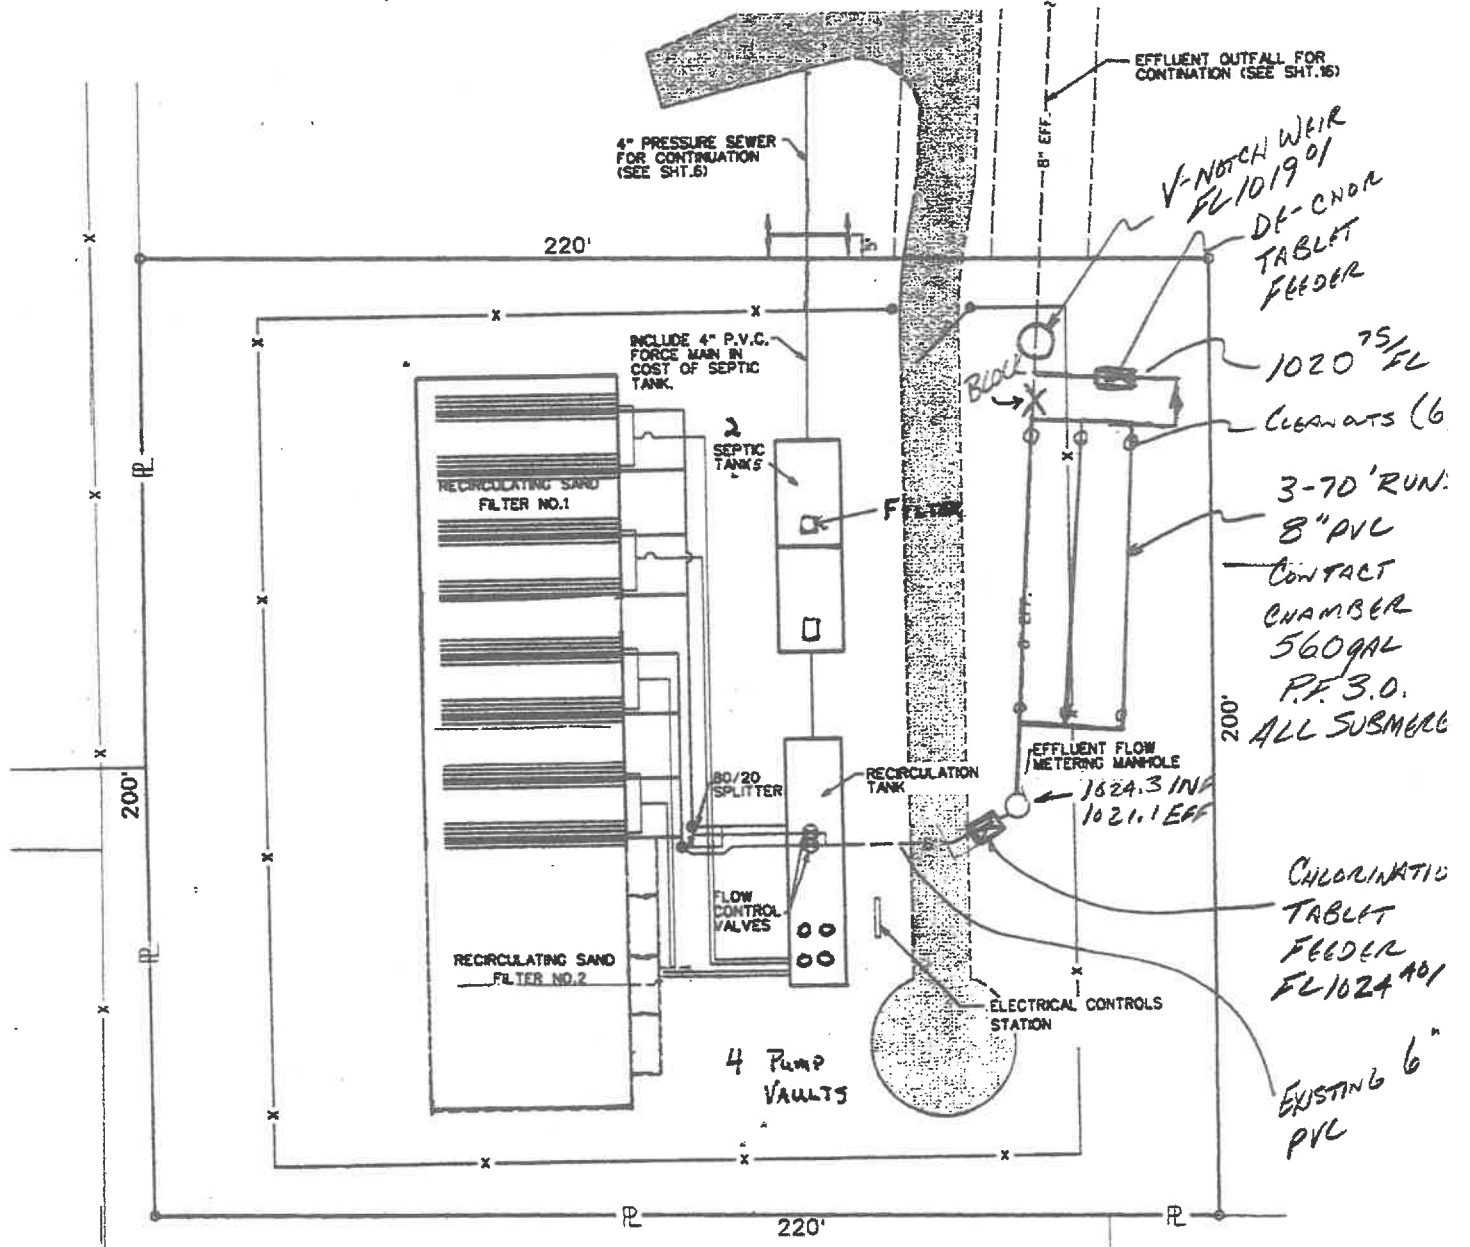 EFFLUENT OUTFALL FOR
CONTINATION (SEE SHT.16)
8" EFF.
4" PRESSURE SEWER
FOR CONTINUATION
(SEE SHT.6)
V-NOTCH WEIR
FL 1019 01
DE-CHOR
TABLET
FEEDER
220'
INCLUDE 4" P.V.C.
FORCE MAIN IN
COST OF SEPTIC
TANK.
BLOCK
1020 75/FL
CLEANOUTS (6
2
SEPTIC
TANKS
RECIRCULATING SAND
FILTER NO.1
FILTER
3-70' RUN
8" PVC
CONTACT
CHAMBER
560 gAL
P.F. 3.0.
ALL SUBMERG
EFF.
200'
200'
EFFLUENT FLOW
METERING MANHOLE
1024.3 INF
1021.1 EFF
80/20
SPLITTER
RECIRCULATION
TANK
FLOW
CONTROL
VALVES
CHLORINATIO
TABLET
FEEDER
FL 1024 40/
RECIRCULATING SAND
FILTER NO.2
ELECTRICAL CONTROLS
STATION
4 PUMP
VAULTS
EXISTING 6"
PVC
PL
PL
PL
PL
220'